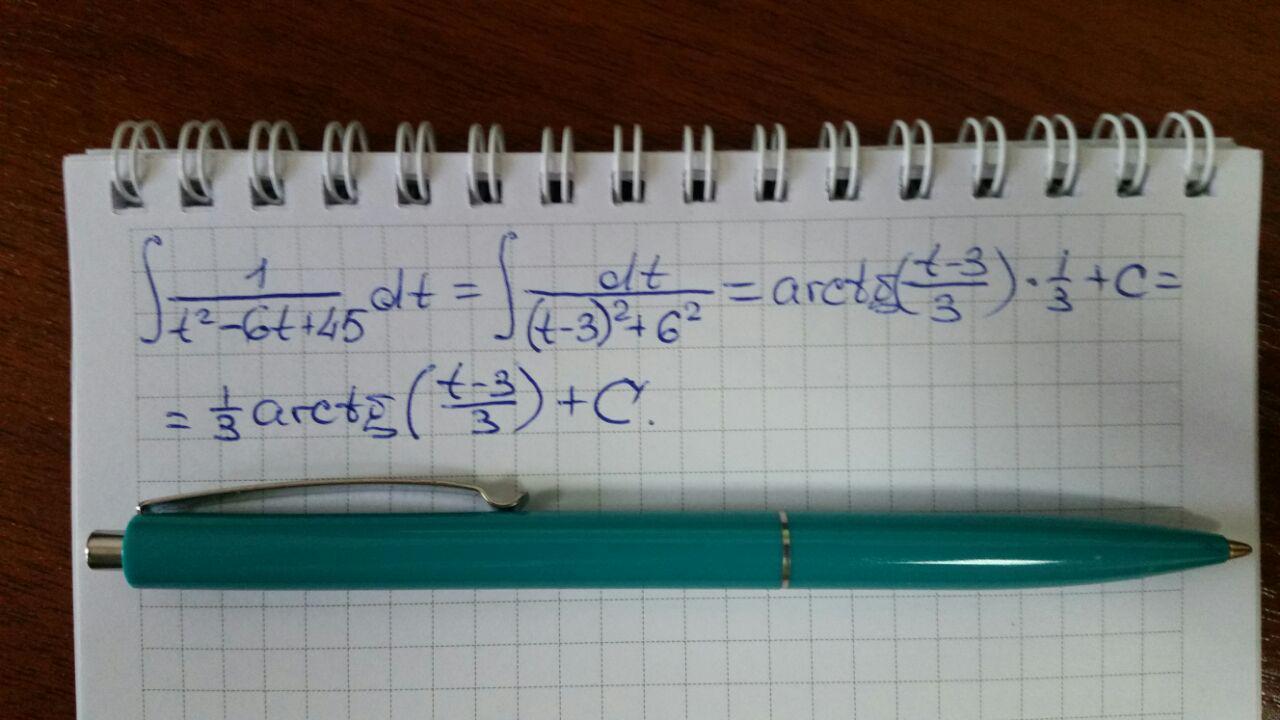 ∫ 1/(t²-6t+45) dt = ∫ dt/((t-3)²+6²) = arctg((t-3)/3)·1/3+C=
= 1/3 arctg((t-3)/3)+C.